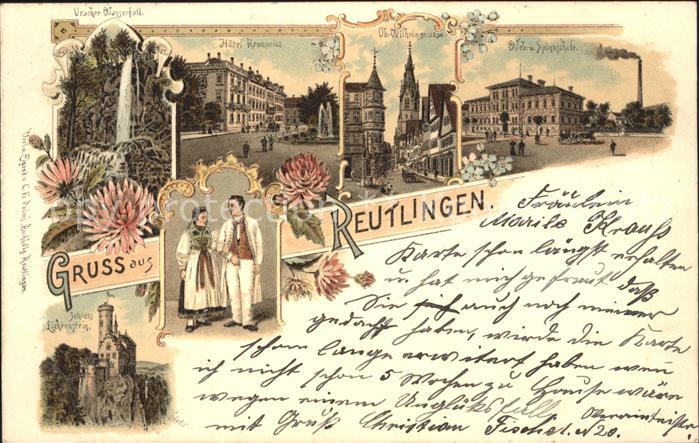 Uracher Wasserfall.
Hôtel Kronprinz.
Ob. Wilhelmstrasse.
Web- u. Spinnschule.
GRUSS aus REUTLINGEN.
Schloss
Lichtenstein.
Fräulein
Marile Krauß
Karte schon längst erhalten
u. hat mich gefraut daß
Sie sich auch noch meiner
gedacht haben, würde die Karte
schon lange erwitert haben wen
ich nicht schon 5 Wochen zu Hause wäre
wegen einem Unglüksfall
mit Gruß Christian Fischel. N 20.